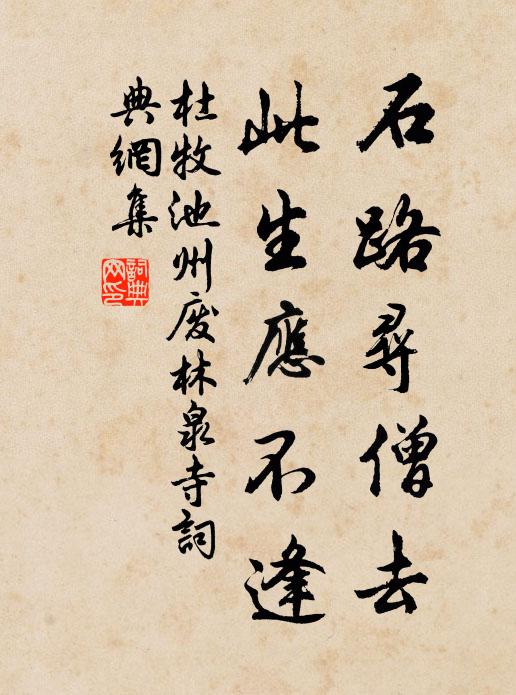 石路尋僧去
此生應不逢
杜牧池州废林泉寺詞
典網集
詞典
网印